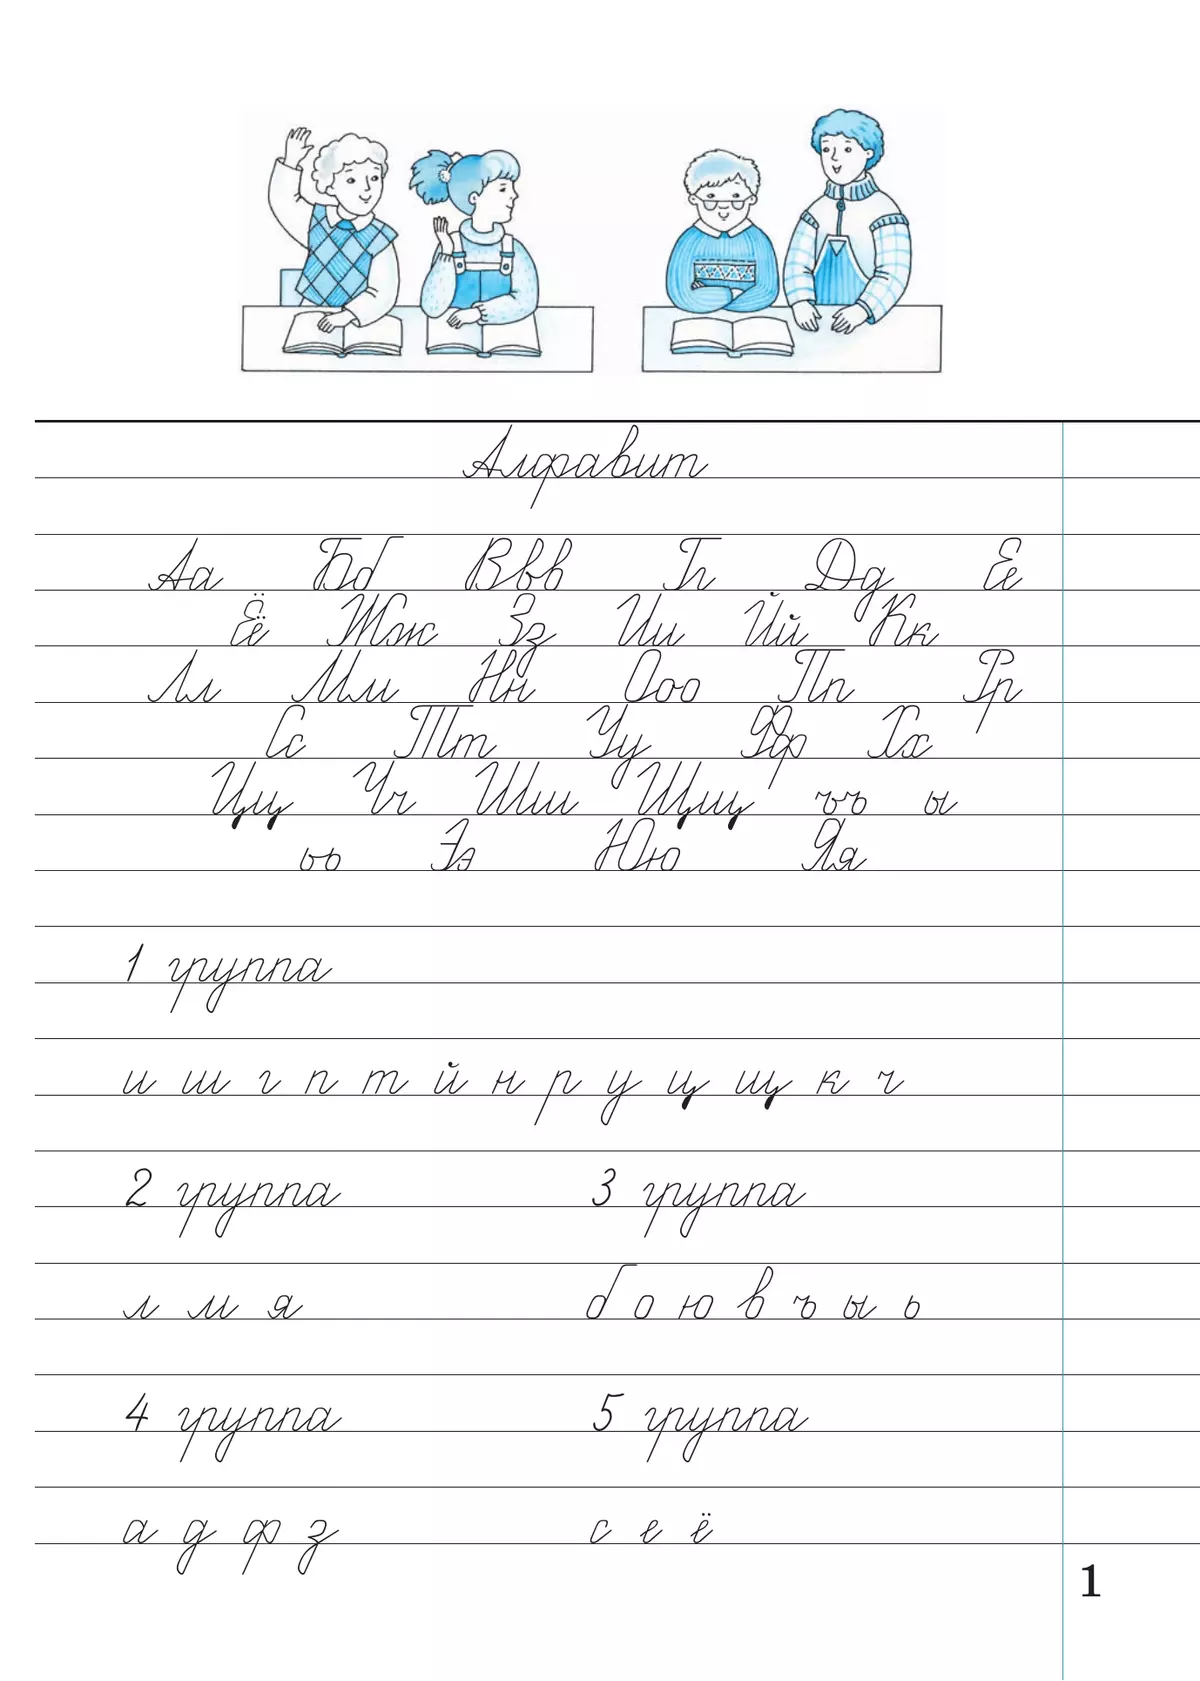 Алфавит
Аа Бб Ввв Гг Дд Ее
Ёё Жж Зз Ии Йй Кк
Лл Мм Нн Ооо Пп Рр
Сс Тт Уу Фф Хх
Цц Чч Шш Щщ ъъ ы
ьь Ээ Юю Яя
1 группа
и ш г п т й н р у ц щ к ч
2 группа 3 группа
л м я б о ю в ъ ы ь
4 группа 5 группа
а д ф з с е ё
1